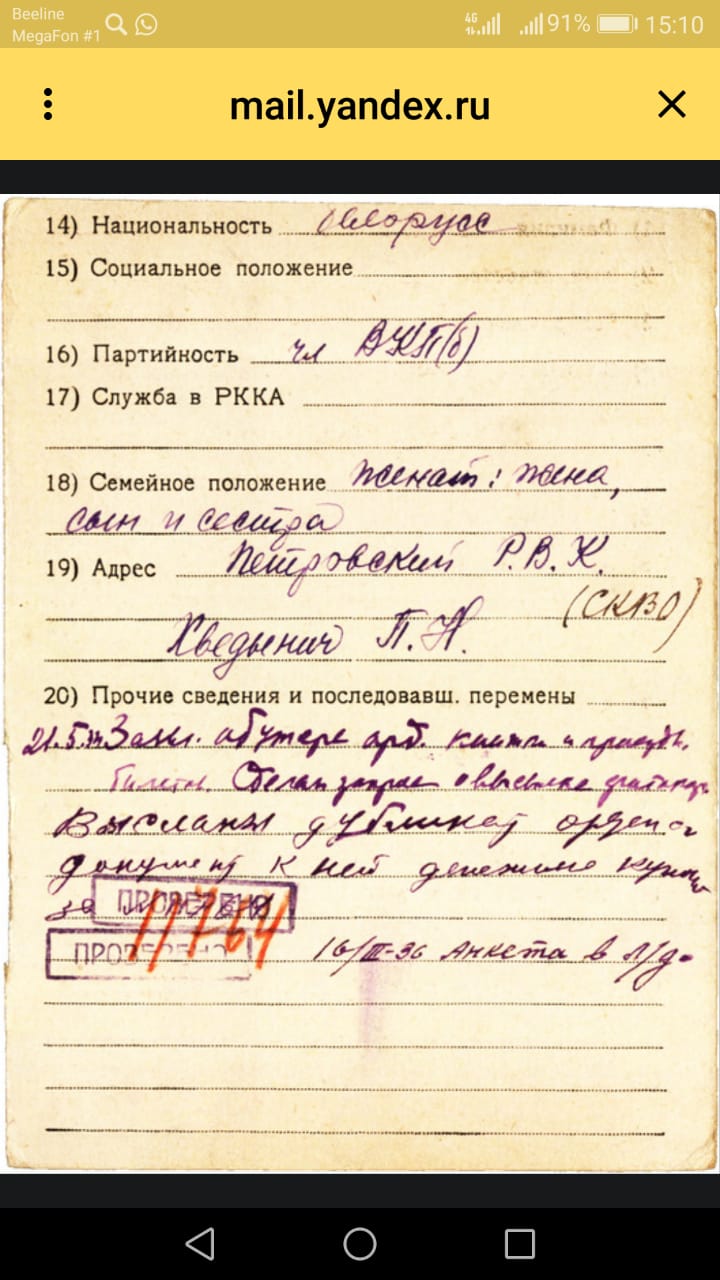 Beeline
MegaFon #1
4G
91%
15:10
mail.yandex.ru
14) Национальность белорусс
15) Социальное положение
16) Партийность чл ВКП(б)
17) Служба в РККА
18) Семейное положение женат: жена,
сын и сестра
19) Адрес Петровский Р.В.К.
(СКВО)
Хведынич П.Н.
20) Прочие сведения и последовавш. перемены
21.5. Заяв. об утере орд. книжки и
билетов. Сделан запрос о высылке
Высланы дубликат орден.
документ к ней денежные купоны
за
ПРОВЕРЕНО
11764
ПРОВЕРЕНО
16/III-36 Анкета в л/д.